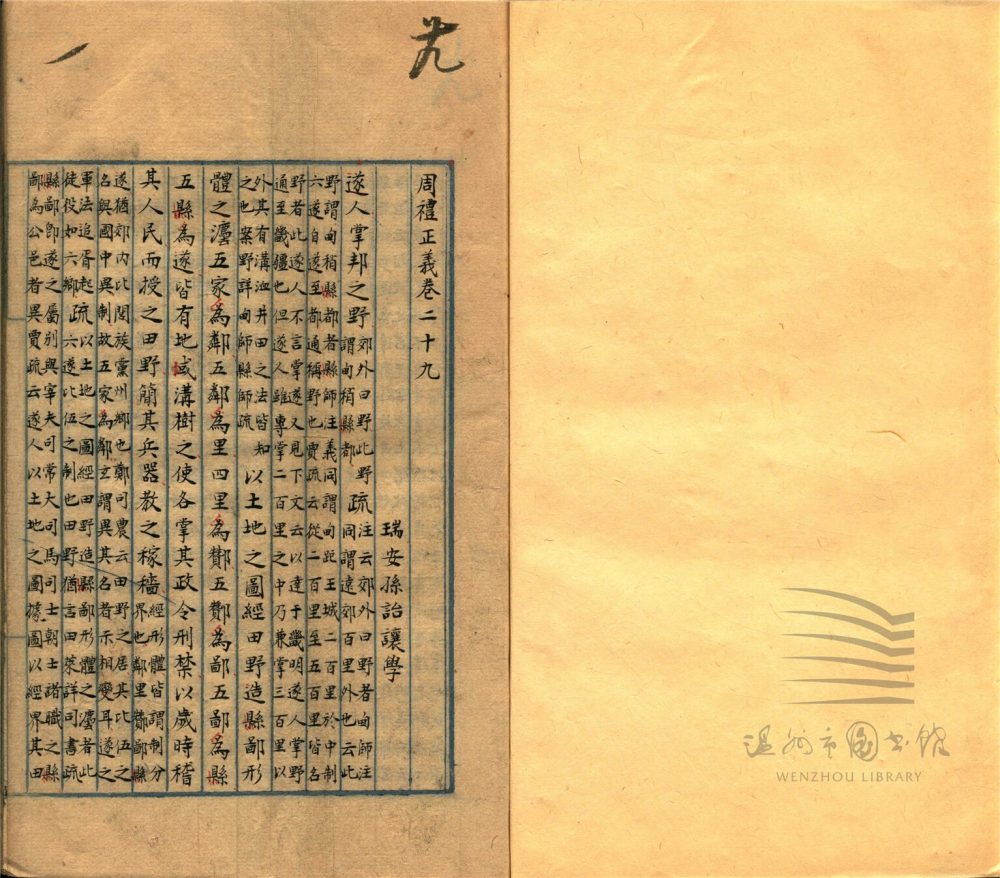 廿九
一
周禮正義卷二十九
瑞安孫詒讓學
遂人掌邦之野郊外曰野此野謂甸稍縣都疏注云郊外曰野者甸師注同謂遠郊百里外也云此
野謂甸稍縣都者縣師注義同謂甸距王城二百里於中制
六遂自遂至都通稱野也賈疏云從二百里至五百里皆名
野者此遂人不言掌遂又見下文云以達于畿明遂人掌野
通至畿疆也但遂人雖專掌二百里之中乃兼掌三百里以
外其有溝洫井田之法皆知之也案野詳甸師縣師疏以土地之圖經田野造縣鄙形
體之灋五家為鄰五鄰為里四里為酇五酇為鄙五鄙為縣
五縣為遂皆有地域溝樹之使各掌其政令刑禁以歲時稽
其人民而授之田野簡其兵器教之稼穡經形體皆謂制分界也鄰里酇鄙縣
遂猶郊內比閭族黨州鄉也鄭司農云田野之居其比伍之
名與國中異制故五家為鄰玄謂異其名者示相變耳遂之
軍法追胥起徒役如六鄉疏以土地之圖經田野造縣鄙形體之灋者此六遂比伍之制也田野猶言田萊詳司書疏
縣鄙即遂之屬別與宰夫司常大司馬司士朝士諸職之縣
鄙為公邑者異賈疏云遂人以土地之圖據圖以經界其田
温州市图书馆
WENZHOU LIBRARY